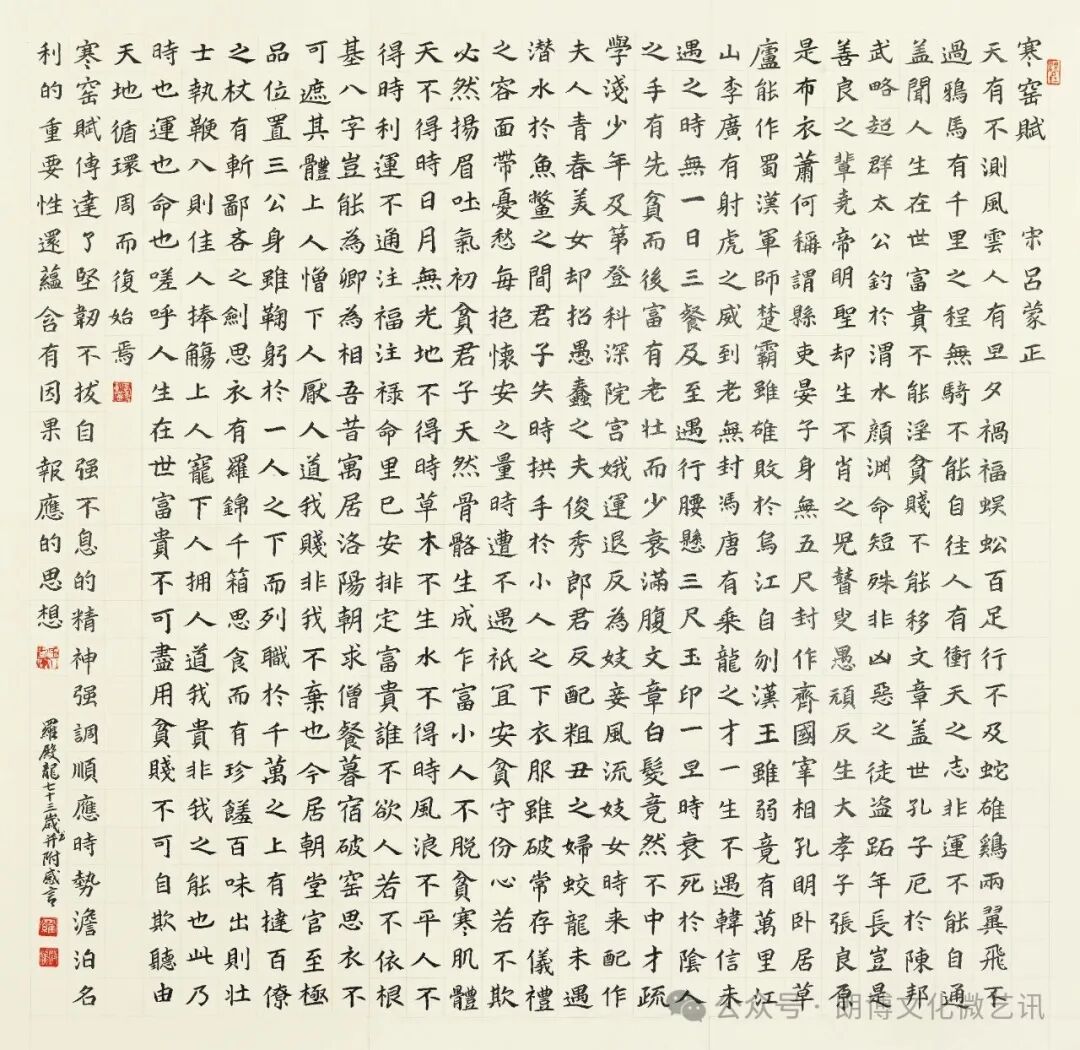 寒窑賦 宋呂蒙正
天有不測風雲人有旦夕禍福蜈蚣百足行不及蛇雄鷄兩翼飛不
過鴉馬有千里之程無騎不能自往人有衝天之志非運不能自通
盖聞人生在世富貴不能淫貧賤不能移文章盖世孔子厄於陳邦
武略超群太公釣於渭水顏渊命短殊非凶惡之徒盗跖年長豈是
善良之輩堯帝明聖却生不肖之兒瞽叟愚頑反生大孝子張良原
是布衣蕭何稱謂縣吏晏子身無五尺封作齊國宰相孔明卧居草
廬能作蜀漢軍師楚霸雖雄敗於烏江自刎漢王雖弱竟有萬里江
山李廣有射虎之威到老無封馮唐有乘龍之才一生不遇韓信未
遇之時無一日三餐及至遇行腰懸三尺玉印一旦時衰死於陰人
之手有先貧而後富有老壯而少衰滿腹文章白髮竟然不中才疏
學淺少年及第登科深院宫娥運退反為妓妾風流妓女時来配作
夫人青春美女却招愚蠢之夫俊秀郎君反配粗丑之婦蛟龍未遇
潜水於魚鱉之間君子失時拱手於小人之下衣服雖破常存儀禮
之容面帶憂愁每抱懷安之量時遭不遇祇宜安貧守份心若不欺
必然揚眉吐氣初貧君子天然骨骼生成乍富小人不脱貧寒肌體
天不得時日月無光地不得時草木不生水不得時風浪不平人不
得時利運不通注福注禄命里已安排定富貴誰不欲人若不依根
基八字豈能為卿為相吾昔寓居洛陽朝求僧餐暮宿破窑思衣不
可遮其體上人憎下人厭人道我賤非我不棄也今居朝堂官至極
品位置三公身雖鞠躬於一人之下而列職於千萬之上有撻百僚
之杖有斬鄙吝之劍思衣有羅錦千箱思食而有珍饈百味出則壯
士執鞭入則佳人捧觴上人寵下人拥人道我貴非我之能也此乃
時也運也命也嗟呼人生在世富貴不可盡用貧賤不可自欺聽由
天地循環周而復始焉
寒窑賦傳達了堅韌不拔自强不息的精神强調順應時勢澹泊名
利的重要性還蘊含有因果報應的思想
羅殿龍七十三歲并附感言
公众号·朗博文化微艺讯